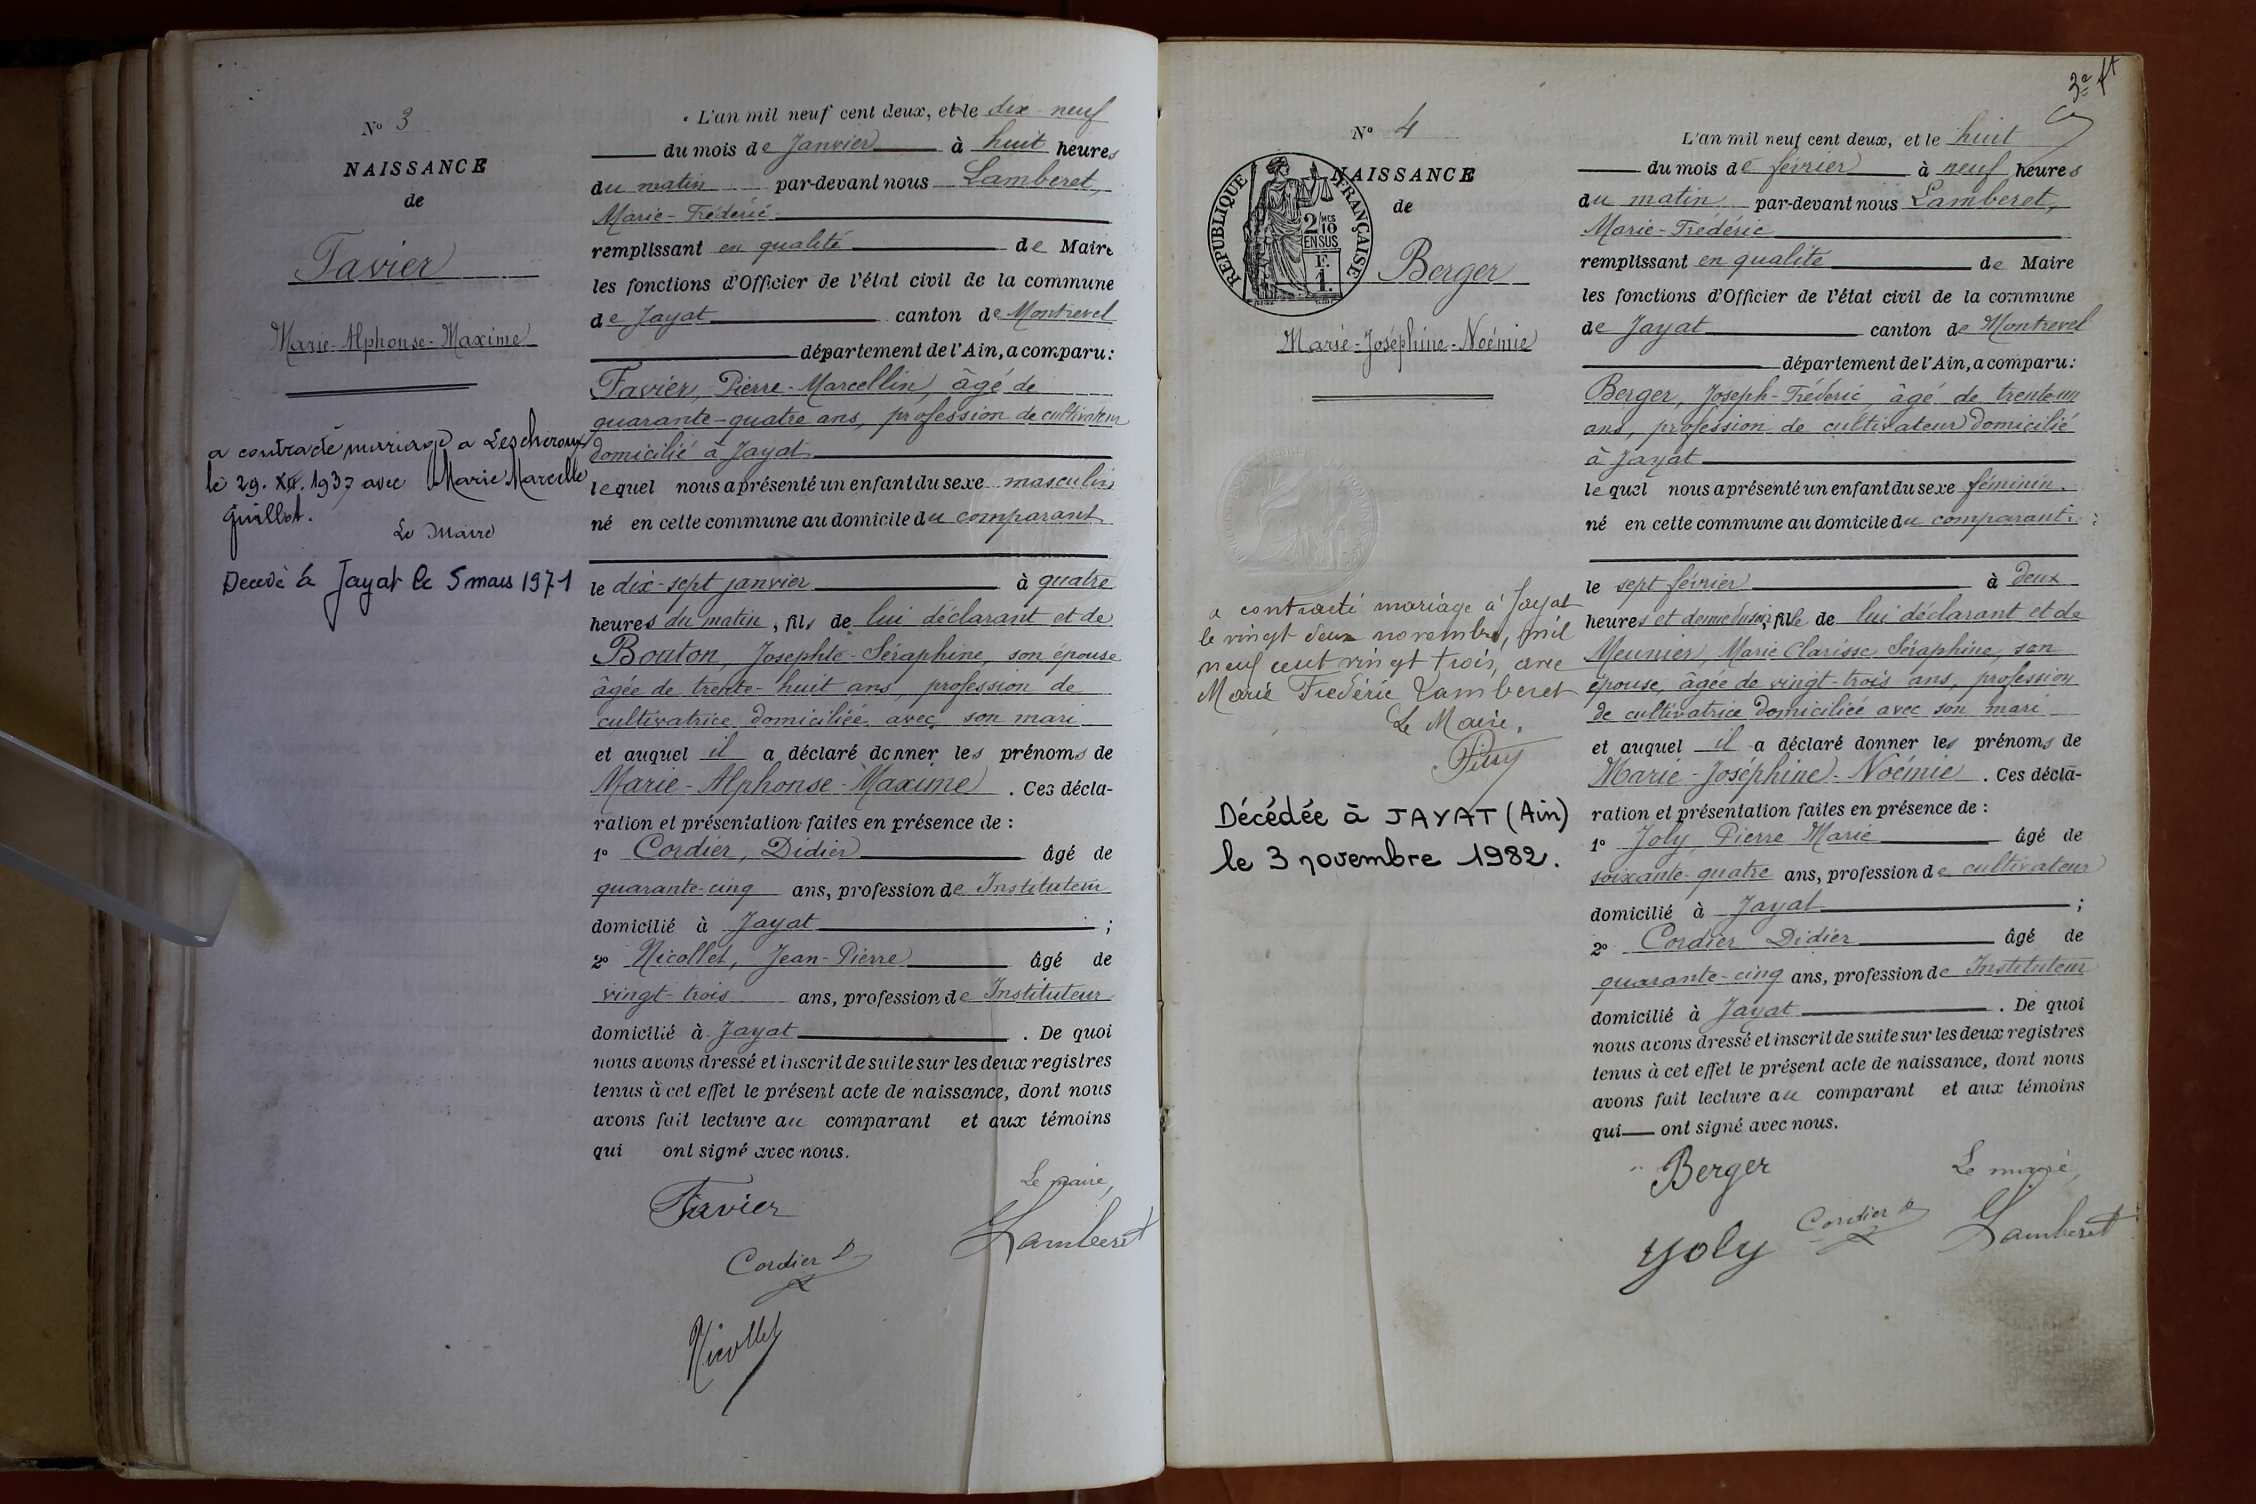 N° 3
NAISSANCE
de
Favier
Marie-Alphonse-Maxime
a contracté mariage a Lescheroux
le 29. XII. 1937 avec Marie Marcelle
Guillot.
Le Maire
Decedé à Jayat le 5 mars 1971
L'an mil neuf cent deux, et le dix-neuf
du mois de Janvier à huit heures
du matin par-devant nous Lamberet,
Marie-Frédéric
remplissant en qualité de Maire
les fonctions d'Officier de l'état civil de la commune
de Jayat canton de Montrevel
département de l'Ain, a comparu:
Favier, Pierre-Marcellin, âgé de
quarante-quatre ans, profession de cultivateur
domicilié à Jayat
lequel nous a présenté un enfant du sexe masculin
né en cette commune au domicile du comparant
le dix-sept janvier à quatre
heures du matin, fils de lui déclarant et de
Bouton, Josephte-Séraphine, son épouse
âgée de trente-huit ans, profession de
cultivatrice domiciliée avec son mari
et auquel il a déclaré donner les prénoms de
Marie-Alphonse-Maxime. Ces décla-
ration et présentation faites en présence de :
1° Cordier, Didier âgé de
quarante-cinq ans, profession de Instituteur
domicilié à Jayat ;
2° Nicollet, Jean-Pierre âgé de
vingt-trois ans, profession de Instituteur
domicilié à Jayat . De quoi
nous avons dressé et inscrit de suite sur les deux registres
tenus à cet effet le présent acte de naissance, dont nous
avons fait lecture au comparant et aux témoins
qui ont signé avec nous.
Le maire,
Favier
Lamberet
Cordier D
Nicollet
3e ft
N° 4
NAISSANCE
de
REPUBLIQUE FRANÇAISE
2/10 MES
EN SUS
F.
1.
Berger
Marie-Joséphine-Noémie
a contracté mariage à Jayat
le vingt deux novembre, mil
neuf cent vingt trois, avec
Marie Frédéric Lamberet
Le Maire,
Décédée à JAYAT (Ain)
le 3 novembre 1982.
L'an mil neuf cent deux, et le huit
du mois de février à neuf heures
du matin par-devant nous Lamberet,
Marie-Frédéric
remplissant en qualité de Maire
les fonctions d'Officier de l'état civil de la commune
de Jayat canton de Montrevel
département de l'Ain, a comparu:
Berger, Joseph-Fréderic, âgé de trente un
ans, profession de cultivateur domicilié
à Jayat
lequel nous a présenté un enfant du sexe féminin.
né en cette commune au domicile du comparant.
le sept février à deux
heures et demie du soir, fille de lui déclarant et de
Meunier, Marie Clarisse Séraphine, son
épouse, âgée de vingt-trois ans, profession
de cultivatrice domiciliée avec son mari
et auquel il a déclaré donner les prénoms de
Marie-Joséphine-Noémie. Ces décla-
ration et présentation faites en présence de :
1° Joly Pierre Marie âgé de
soixante-quatre ans, profession de cultivateur
domicilié à Jayat ;
2° Cordier Didier âgé de
quarante-cinq ans, profession de Instituteur
domicilié à Jayat . De quoi
nous avons dressé et inscrit de suite sur les deux registres
tenus à cet effet le présent acte de naissance, dont nous
avons fait lecture au comparant et aux témoins
qui ont signé avec nous.
Berger
Le maire,
Cordier D
Lamberet
Joly